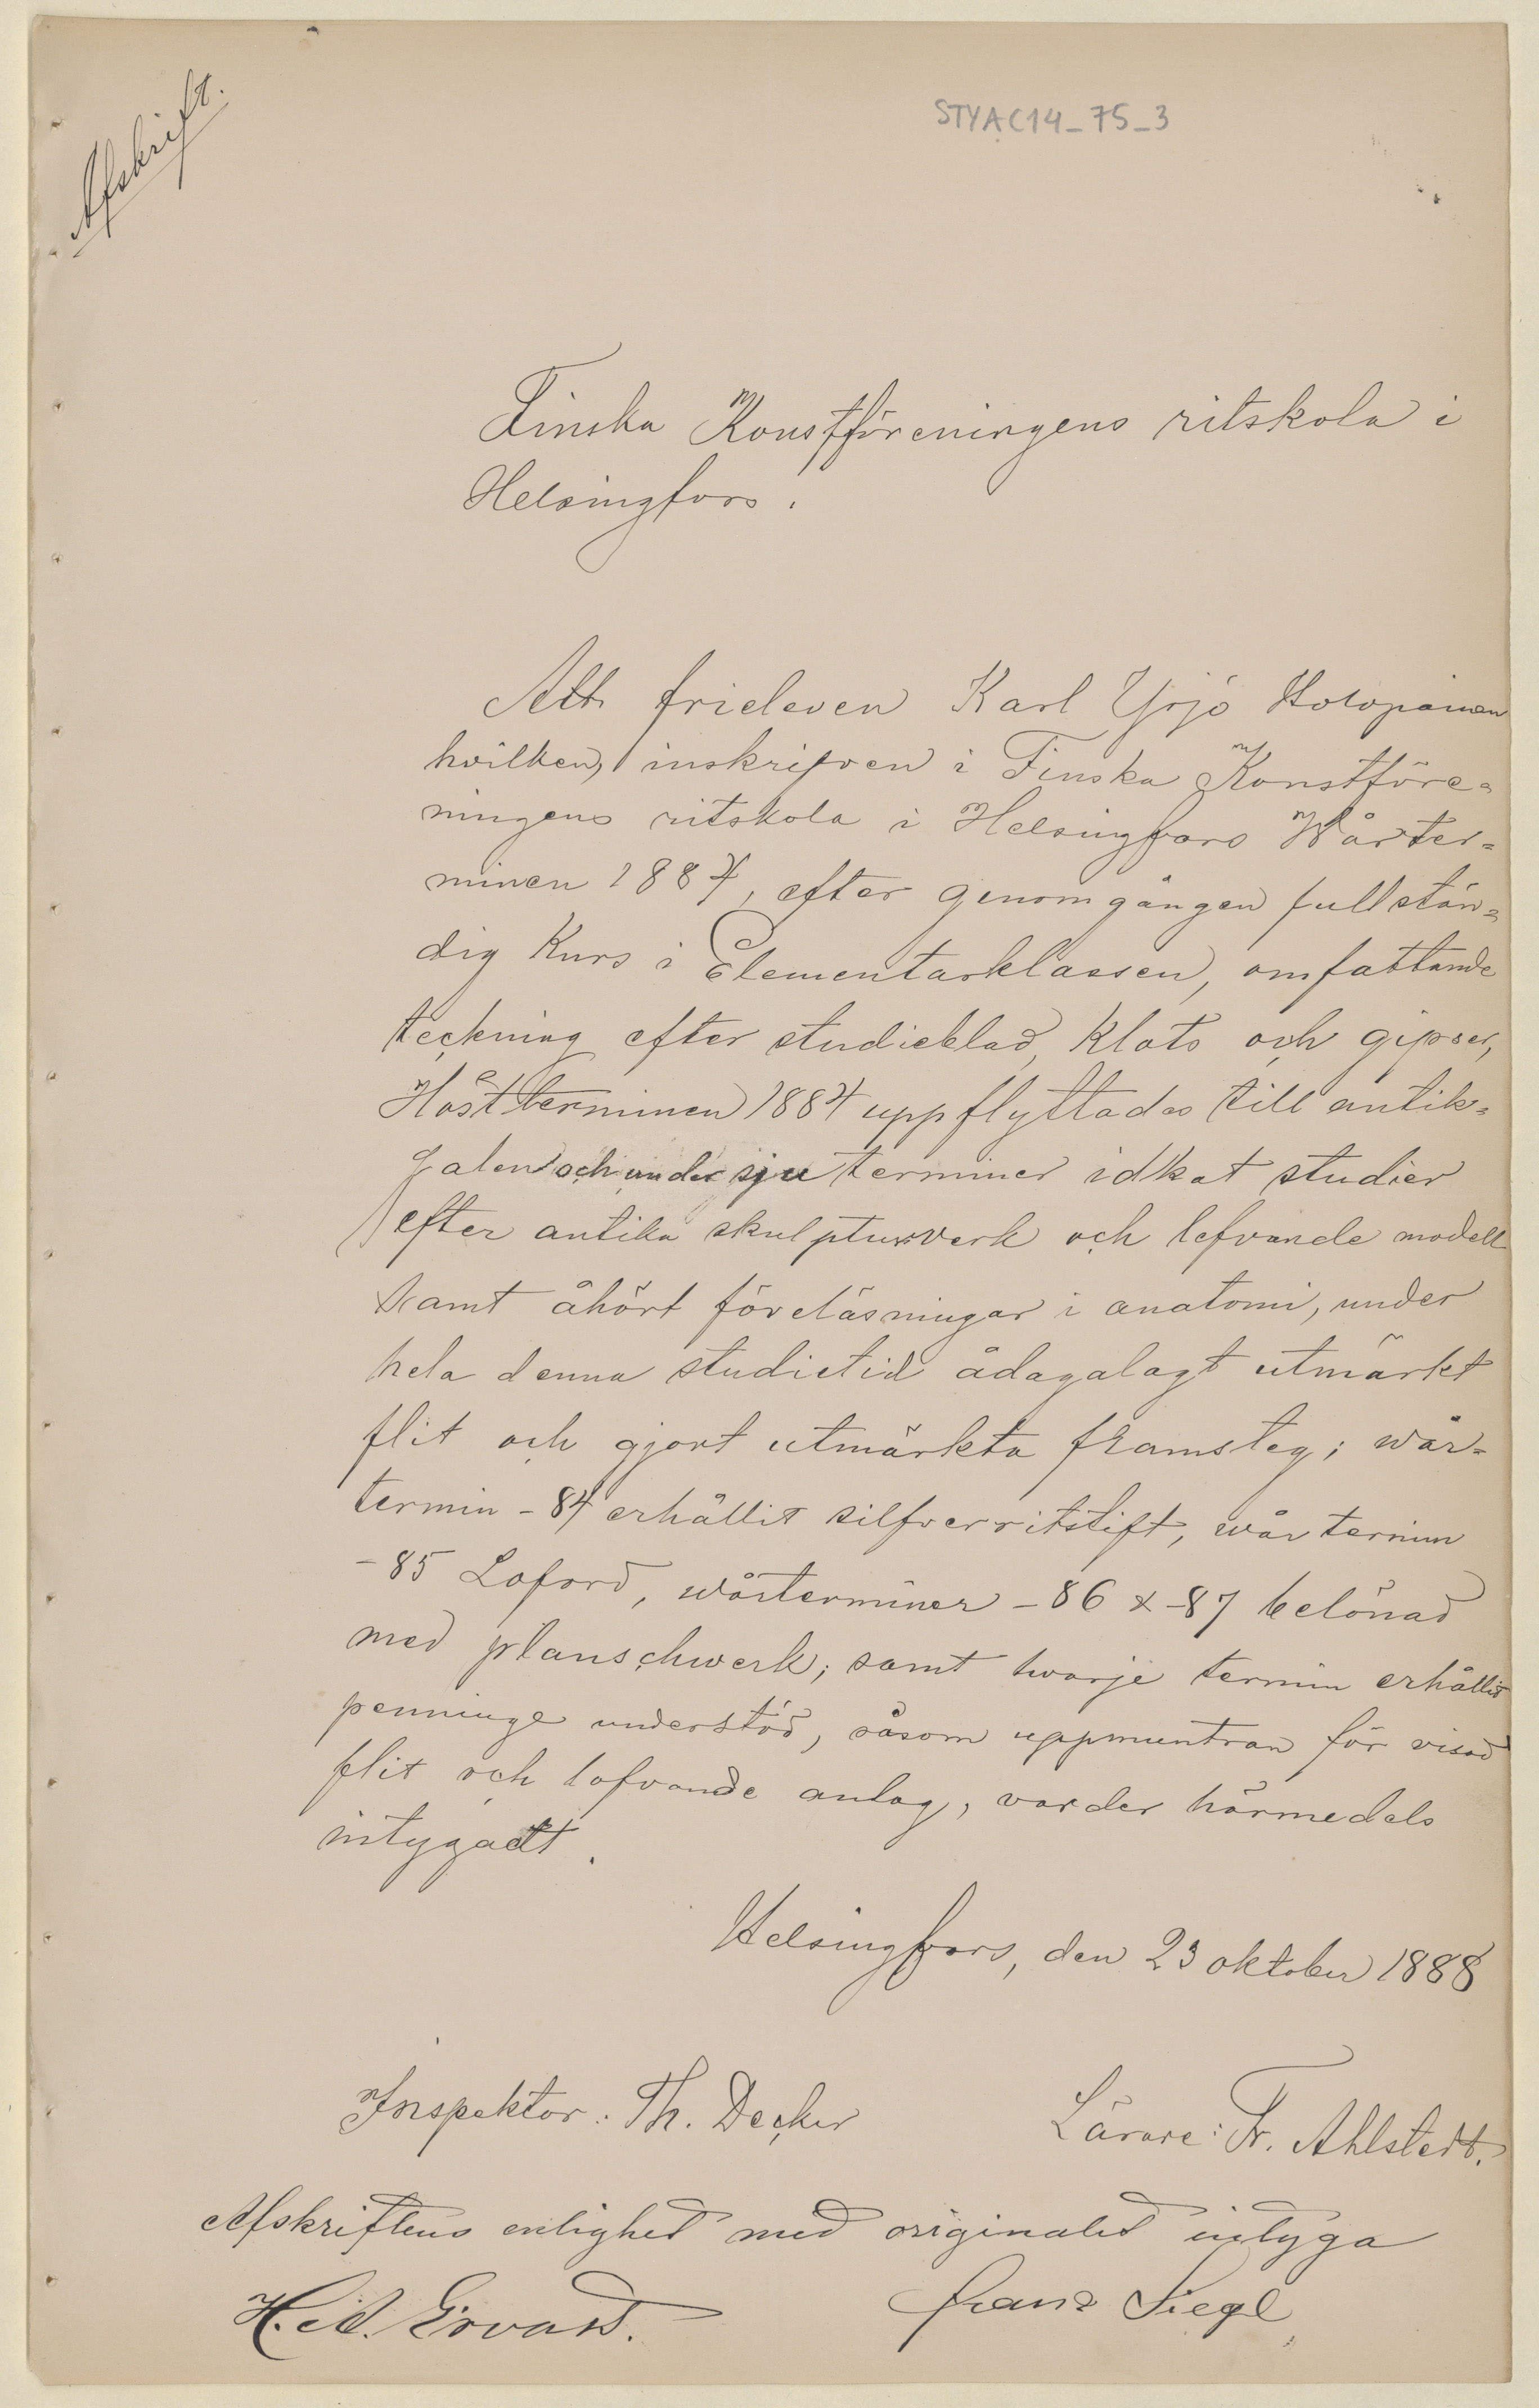 Afskrift.
STYAC14_75_3
Finska Konstföreningens ritskola i
Helsingfors.
Att frieleven Karl Yrjö Holopainen
hvilken, inskrifven i Finska Konstföre=
ningens ritskola i Helsingfors Wårter=
minen 1884, efter genomgången fullstän=
dig Kurs i Elementarklassen, omfattande
teckning efter studieblad, Klots och gipser,
Höstterminen 1884 uppflyttades till antik=
salen och under sju terminer idkat studier
efter antika skulpturverk och lefvande modell
samt åhört föreläsningar i anatomi, under
hela denna studietid ådagalagt utmärkt
flit och gjort utmärkta framsteg; wår=
termin -84 erhållit silfverritstift, wårtermin
-85 Loford, wårterminer -86 & -87 belönad
med planschwerk; samt hvarje termin erhållit
penninge understöd, såsom uppmuntran för visad
flit och lofvande anlag, varder härmedels
intygadt.
Helsingfors, den 23 oktober 1888
Inspektor: Th. Decker
Lärare: Fr. Ahlstedt.
Afskriftens enlighet med originalet intyga
H. A. Ervast.
Franz Siegl